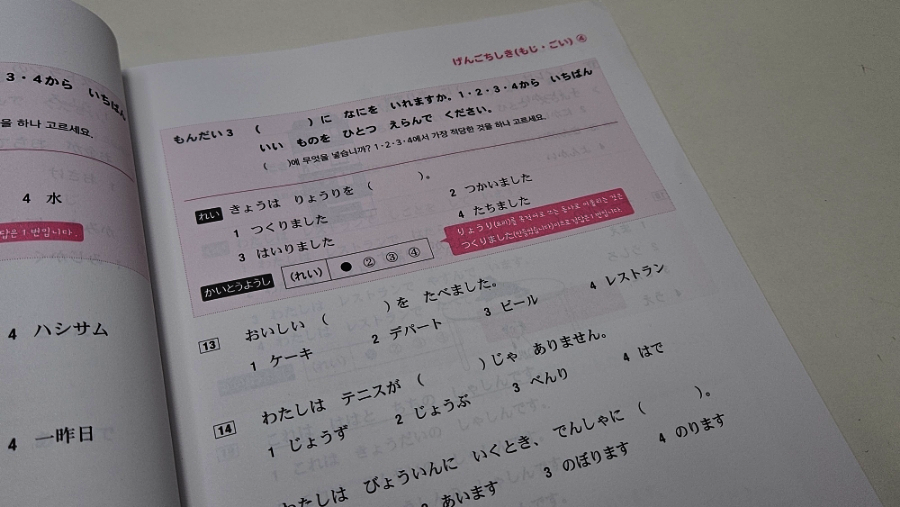 3・4から いちばん
을 하나 고르세요.
4 水
답은 1 번입니다.
4 ハシサム
4 一昨日
げんごちしき(もじ・ごい) ④
もんだい3 ( )に なにを いれますか。1・2・3・4から いちばん
いい ものを ひとつ えらんで ください。
( )에 무엇을 넣습니까? 1・2・3・4에서 가장 적당한 것을 하나 고르세요.
れい きょうは りょうりを ( )。
1 つくりました 2 つかいました
3 はいりました 4 たちました
りょうり(요리)를
つくりました(만들었습니다)이므로 답은 1 번입니다.
かいとうようし (れい) ● ② ③ ④
13 おいしい ( )を たべました。
1 ケーキ 2 デパート 3 ビール 4 レストラン
14 わたしは テニスが ( )じゃ ありません。
1 じょうず 2 じょうぶ 3 べんり 4 はで
わたしは びょういんに いくとき、でんしゃに ( )。
2 あいます 3 のぼります 4 のります